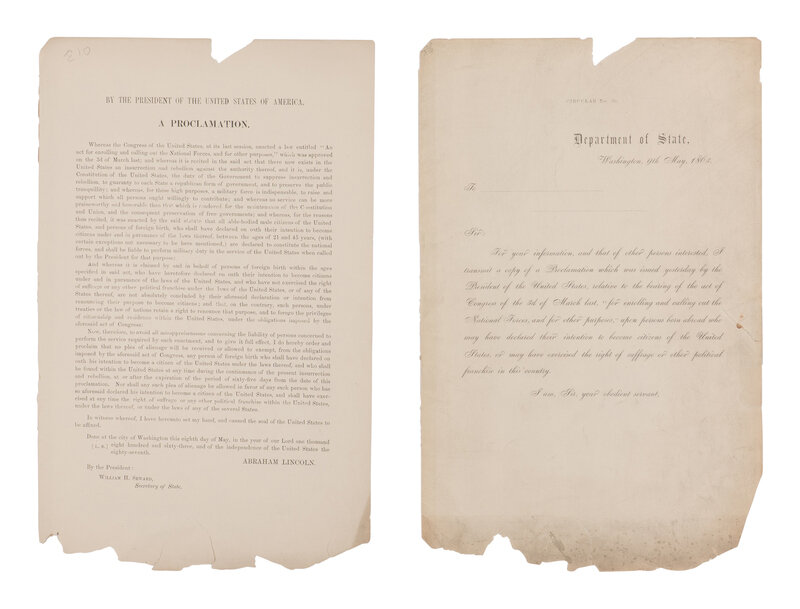 BY THE PRESIDENT OF THE UNITED STATES OF AMERICA.
A PROCLAMATION.
Whereas the Congress of the United States, at its last session, enacted a law entitled "An
act for enrolling and calling out the National Forces, and for other purposes," which was approved
on the 3d of March last; and whereas it is recited in the said act that there now exists in the
United States an insurrection and rebellion against the authority thereof, and it is, under the
Constitution of the United States, the duty of the Government to suppress insurrection and
rebellion, to guaranty to each State a republican form of government, and to preserve the public
tranquillity; and whereas, for these high purposes, a military force is indispensable, to raise and
support which all persons ought willingly to contribute; and whereas no service can be more
praiseworthy and honorable than that which is rendered for the maintenance of the Constitution
and Union, and the consequent preservation of free government; and whereas, for the reasons
thus recited, it was enacted by the said statute that all able-bodied male citizens of the United
States, and persons of foreign birth, who shall have declared on oath their intention to become
citizens under and in pursuance of the laws thereof, between the ages of 21 and 45 years, (with
certain exceptions not necessary to be here mentioned,) are declared to constitute the national
forces, and shall be liable to perform military duty in the service of the United States when called
out by the President for that purpose:
And whereas it is claimed by and in behalf of persons of foreign birth within the ages
specified in said act, who have heretofore declared on oath their intention to become citizens
under and in pursuance of the laws of the United States, and who have not exercised the right
of suffrage or any other political franchise under the laws of the United States, or of any of the
States thereof, are not absolutely concluded by their aforesaid declaration of intention from
renouncing their purpose to become citizens; and that, on the contrary, such persons, under
treaties or the law of nations retain a right to renounce that purpose, and to forego the privileges
of citizenship and residence within the United States, under the obligations imposed by the
aforesaid act of Congress:
Now, therefore, to avoid all misapprehensions concerning the liability of persons concerned to
perform the service required by such enactment, and to give it full effect, I do hereby order and
proclaim that no plea of alienage will be received or allowed to exempt, from the obligations
imposed by the aforesaid act of Congress, any person of foreign birth who shall have declared on
oath his intention to become a citizen of the United States under the laws thereof, and who shall
be found within the United States at any time during the continuance of the present insurrection
and rebellion, at or after the expiration of the period of sixty-five days from the date of this
proclamation. Nor shall any such plea of alienage be allowed in favor of any such person who has
so aforesaid declared his intention to become a citizen of the United States, and shall have exer-
cised at any time the right of suffrage or any other political franchise within the United States,
under the laws thereof, or under the laws of any of the several States.
In witness whereof, I have hereunto set my hand, and caused the seal of the United States to
be affixed.
Done at the city of Washington this eighth day of May, in the year of our Lord one thousand
[L. S.] eight hundred and sixty-three, and of the independence of the United States the
eighty-seventh.
ABRAHAM LINCOLN.
By the President:
WILLIAM H. SEWARD,
Secretary of State.
CIRCULAR No.
Department of State,
Washington, 9th May, 1863.
To
Sir:
For your information, and that of other persons interested, I
transmit a copy of a Proclamation which was issued yesterday by the
President of the United States, relative to the bearing of the act of
Congress of the 3d of March last, "for enrolling and calling out the
National Forces, and for other purposes," upon persons born abroad who
may have declared their intention to become citizens of the United
States, or may have exercised the right of suffrage or other political
franchise in this country.
I am, Sir, your obedient servant,